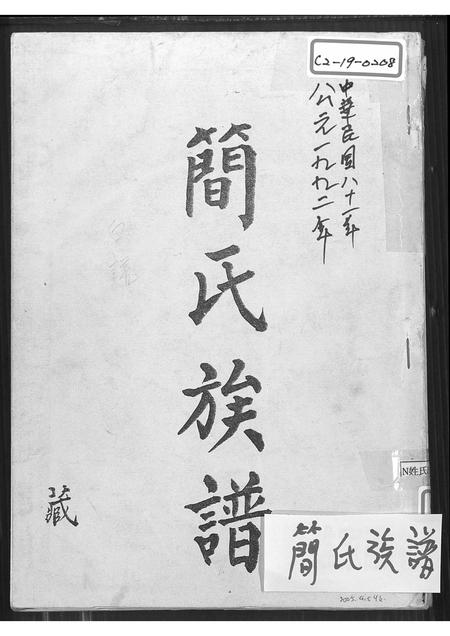 C2-19-0208
中華民国八十一年
公元一九九二年
簡氏族譜
藏
N姓氏
簡氏族譜